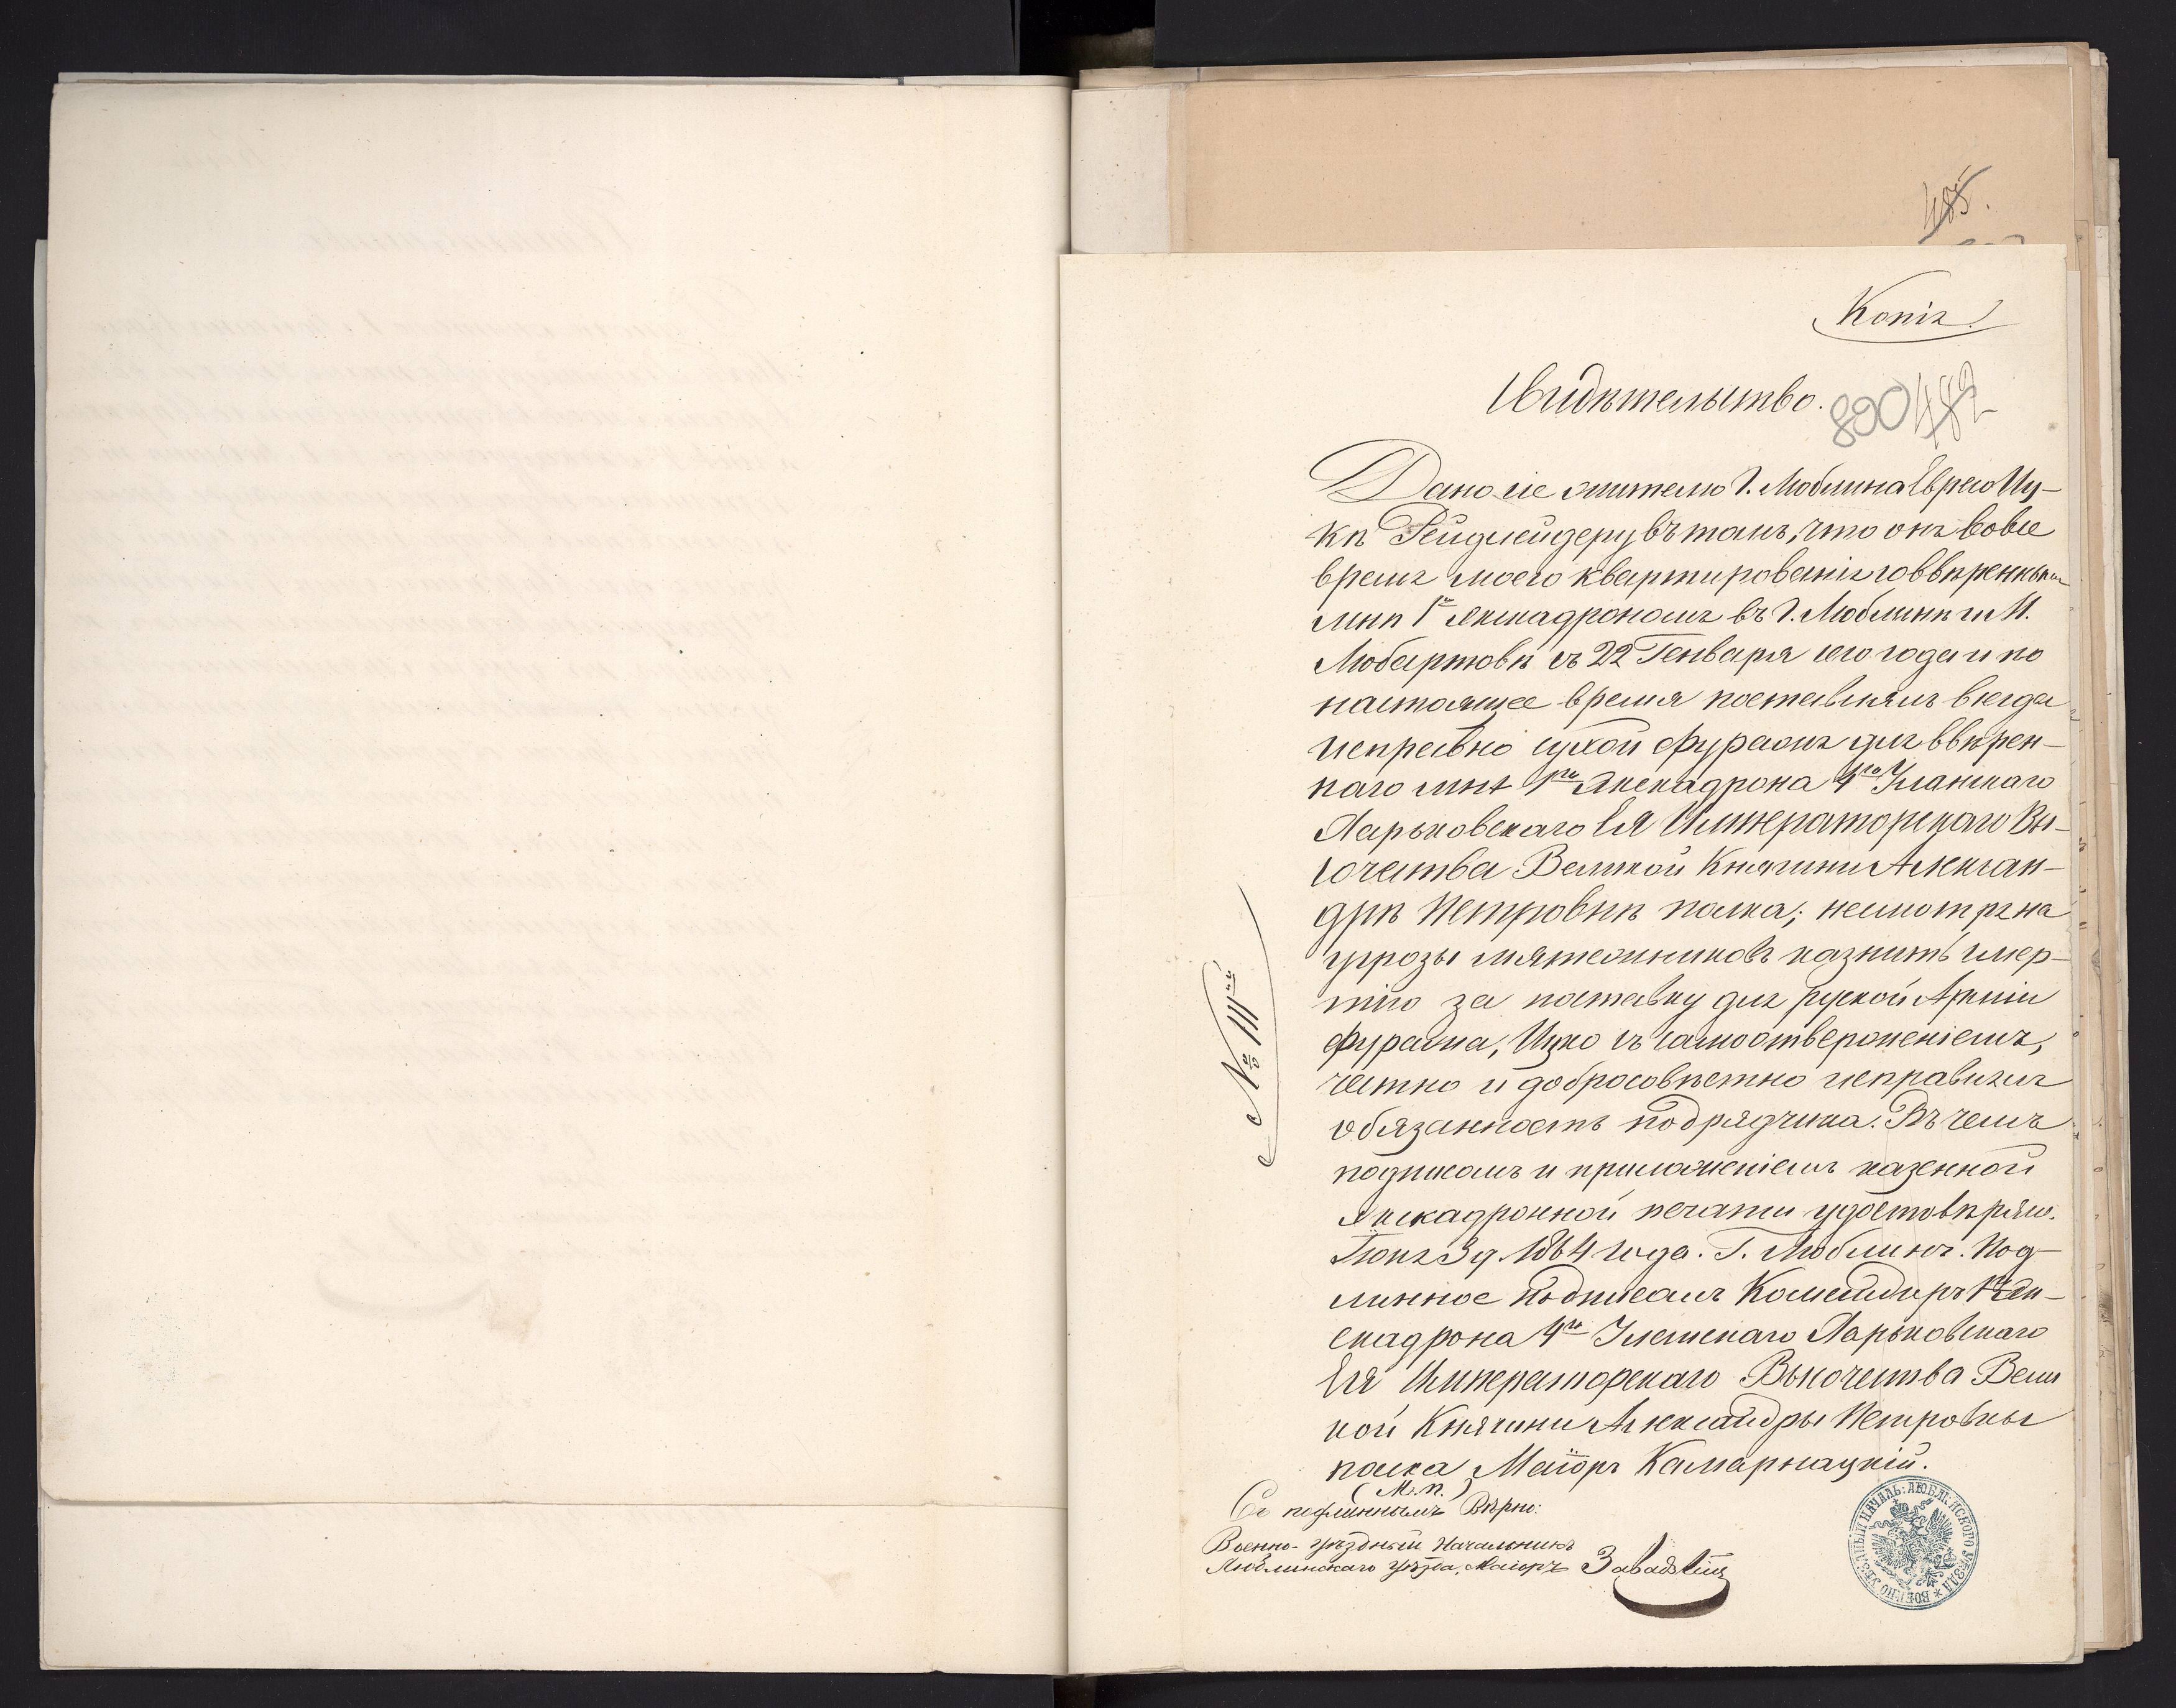 485.
Копія
Свидѣтельство.
800 482
Дано сіе жителю г. Люблина Еврею Иц-
кѣ Рейдлейдеру въ томъ, что онъ во все
время моего квартированія со ввѣреннымъ
мнѣ 1мъ Эскадрономъ въ г. Люблинѣ и М.
Любартовѣ съ 22 Генваря сего года и по
настоящее время поставлялъ всегда
исправно сухой фуражъ для ввѣрен-
наго мнѣ 1го Эскадрона 4го Уланскаго
Харьковскаго Ея Императорскаго Вы-
сочества Великой Княгини Алексан-
дрѣ Петровнѣ полка; несмотря на
угрозы мятежниковъ казнить смер-
тію за поставку для руской Арміи
фуража, Ицко съ самоотверженіемъ,
честно и добросовѣстно исправлялъ
обязанность подрядчика. Въ чемъ
подписомъ и приложеніемъ казенной
Эскадронной печати удостовѣряю.
Іюня 3 д. 1864 года. Г. Люблинъ. Под-
линное подписалъ Командиръ 1го Эс-
кадрона 4го Уланскаго Харьковскаго
Ея Императорскаго Высочества Вели
кой Княгини Александры Петровны
полка Маіоръ Камарнацкій.
(М. п.)
Съ подлиннымъ Вѣрно:
Военно-Уѣздный Начальникъ
Люблинскаго Уѣзда, Маіоръ
№ III й
ВОЕННО УѢЗДНЫЙ НАЧАЛЬ: ЛЮБЛИНСКОГО УѢЗДА *